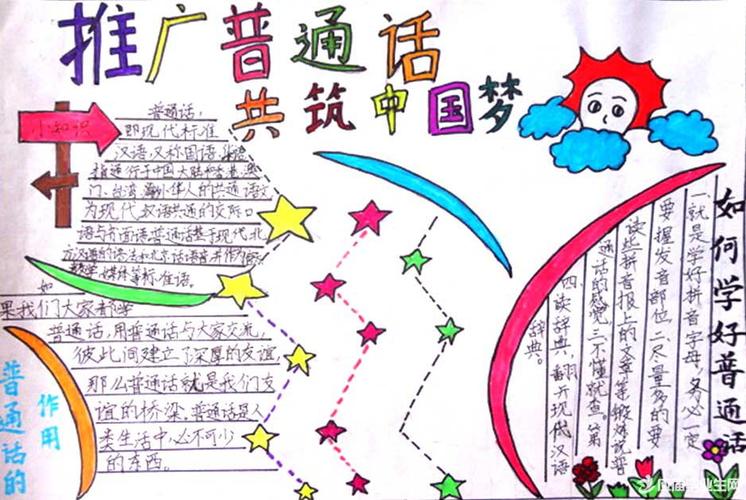 推广普通话
共筑中国梦
小知识
普通话，
即现代标准
汉语，又称国语、
通行于中国大陆和香港、澳
门、台湾、海外华人的共通语文
为现代汉语共通的交际口
语与书面语。普通话基于现代北
方汉语的语法和北京话语音
媒体等标准语。
如
果我们大家都学
普通话，用普通话与大家交流，
彼此间建立了深厚的友谊
那么普通话就是我们友
谊的桥梁。普通话是人
类生活中，必不可少
的东西。
普通话的
作用
如何学好普通话
一就是学好拼音字母，务必一定
要握发音部位二尽量多的要
读些拼音报上的文章等锻炼说普
通话的感觉三不懂就查。第
四读辞典，翻开现代汉语
辞典。
应届毕业生网